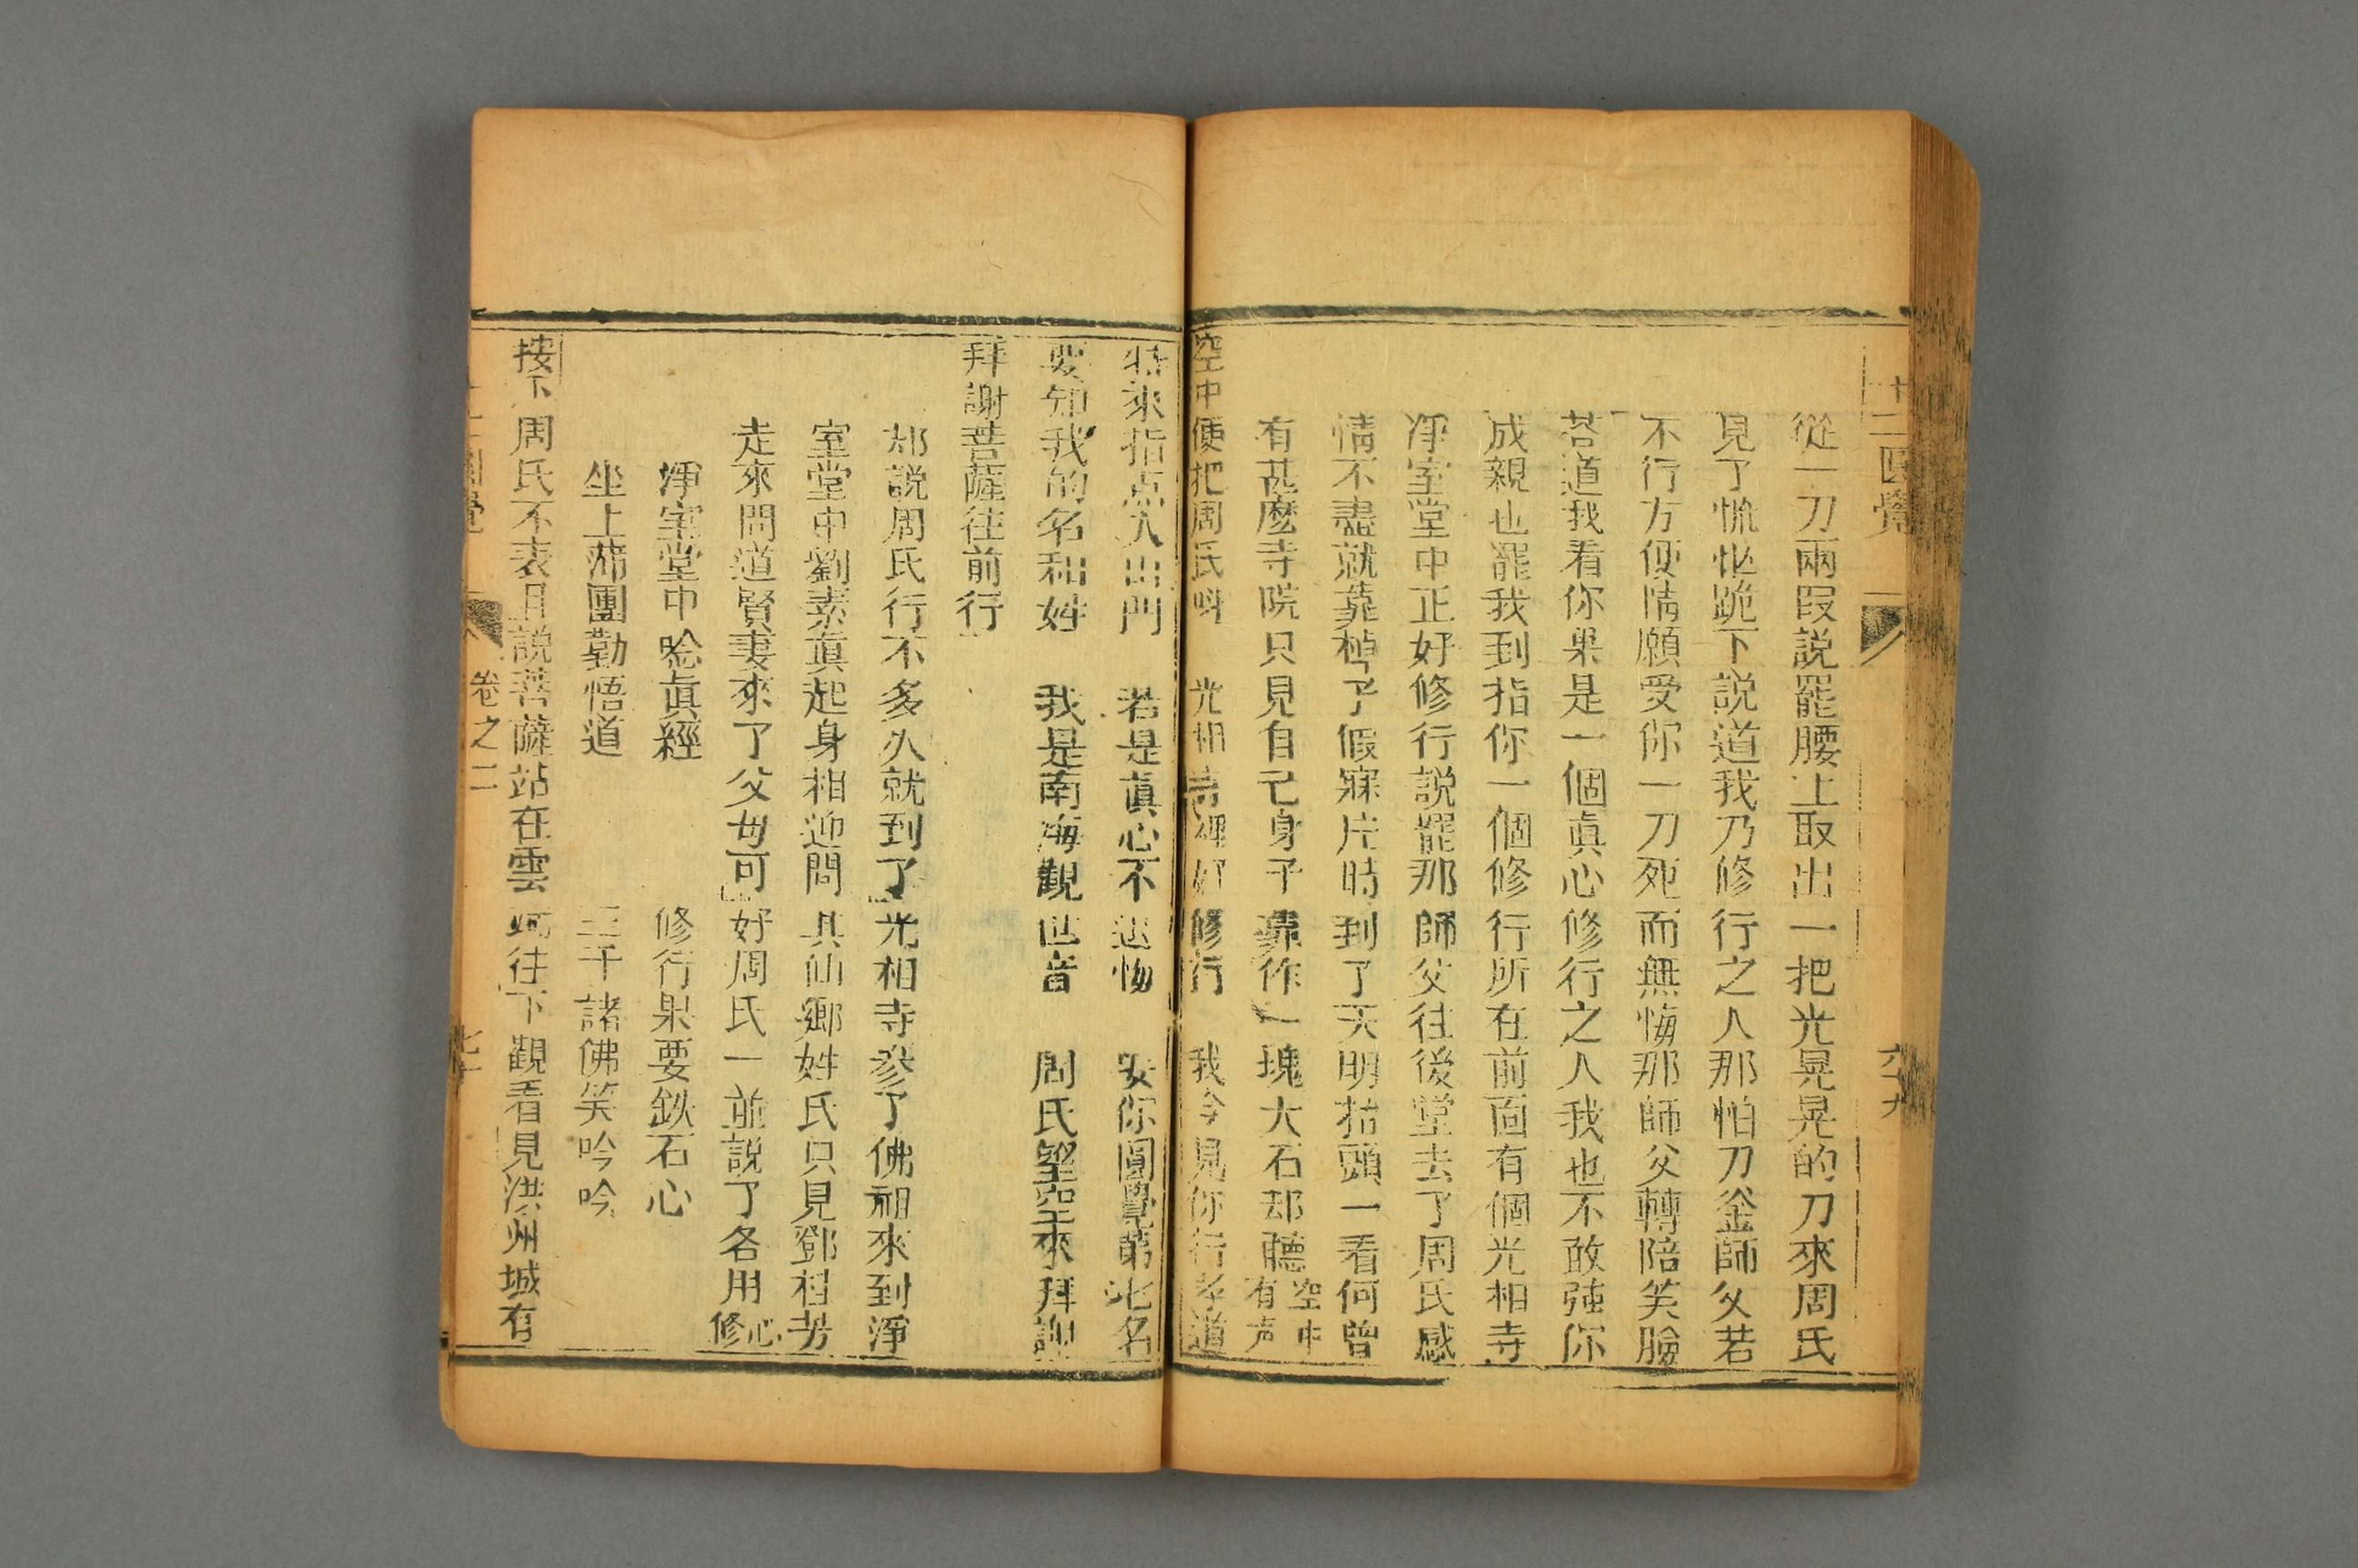 十二圓覺
六十九
從一刀兩段說罷腰上取出一把光晃晃的刀來周氏
見了慌忙跪下說道我乃修行之人那怕刀釜師父若
不行方便情願受你一刀死而無悔那師父轉陪笑臉
答道我看你果是一個眞心修行之人我也不敢强你
成親也罷我到指你一個修行所在前面有個光相寺
净室堂中正好修行說罷那師父往後堂去了周氏感
情不盡就靠棹子假寐片時到了天明抬頭一看何曾
有甚麽寺院只見自己身子靠作一塊大石却聽空中有声
空中便把周氏叫 光相寺裡好修行 我今見你行孝道
特來指点人出門 若是眞心不退悔 安你圓覺第 名
要知我的名和姓 我是南海觀世音 周氏望空來拜謝
拜謝菩薩往前行
却說周氏行不多久就到了光相寺叅了佛祖來到淨
室堂中劉素眞起身相迎問其仙鄉姓氏只見鄧 芳
走來問道賢妻來了父母可好周氏一並說了各用心修
淨室堂中唸眞經 修行果要鉄石心
坐上蒲團勤悟道 三千諸佛笑吟吟
按下周氏不表且說菩薩站在雲 往下觀看見洪州城有
十二圓覺
卷之二
七十